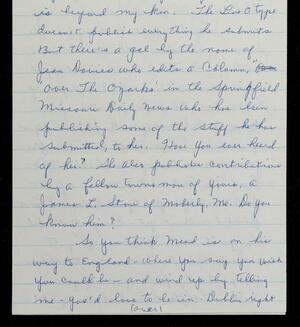 is beyond my ken. The Lin-O-type
doesn't publish everything he submits
But there's a gal by the name of
Jean Davies who edits a Column, "
Over The Ozarks' in the Springfield
Missouri Daily News who has been
publishing some of the stuff he has
submitted, to her. Have you ever heard
of her? She also publishes contributions
by a fellow towns man of yours, a
James L. Stone of Moberly, Mo. Do you
know him?
So you think Mead is on his
way to England - Where you say you wish
you could be - and wind up by telling
me - you'd love to be in Dublin right
(over)